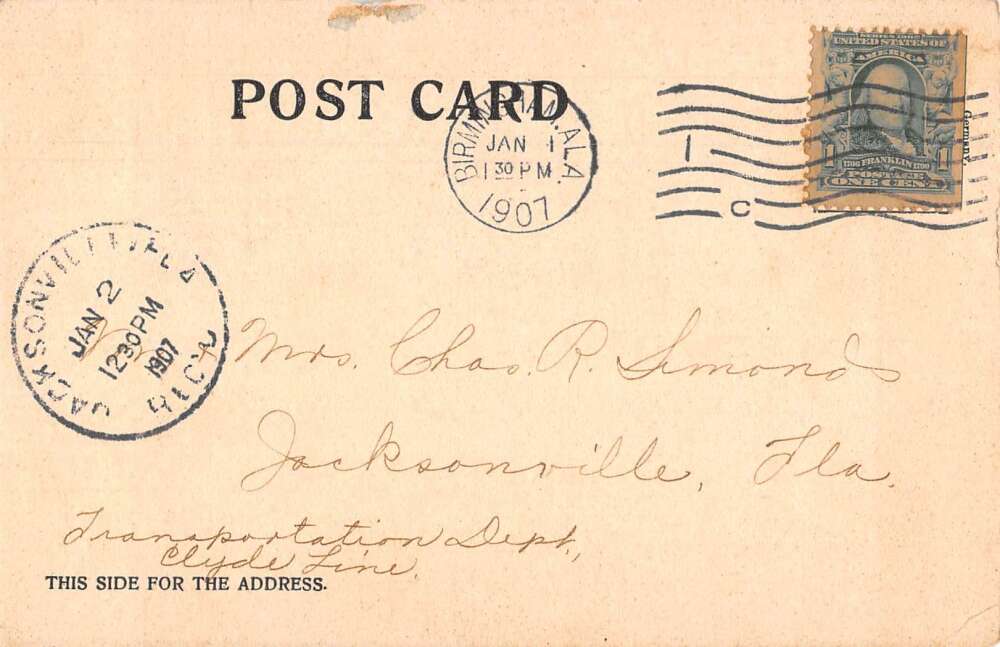 SERIES 1902
UNITED STATES OF
AMERICA
1 1706 FRANKLIN 1790 1
POSTAGE
ONE CENT
Germany.
POST CARD
BIRMINGHAM, ALA.
JAN 1
1 30 PM
1907
1
C
JACKSONVILLE, FLA
JAN 2
12 30 PM
1907
REC'D
Mrs. Chas. R. Simonds
Jacksonville, Fla.
Transportation Dept,
Clyde Line.
THIS SIDE FOR THE ADDRESS.